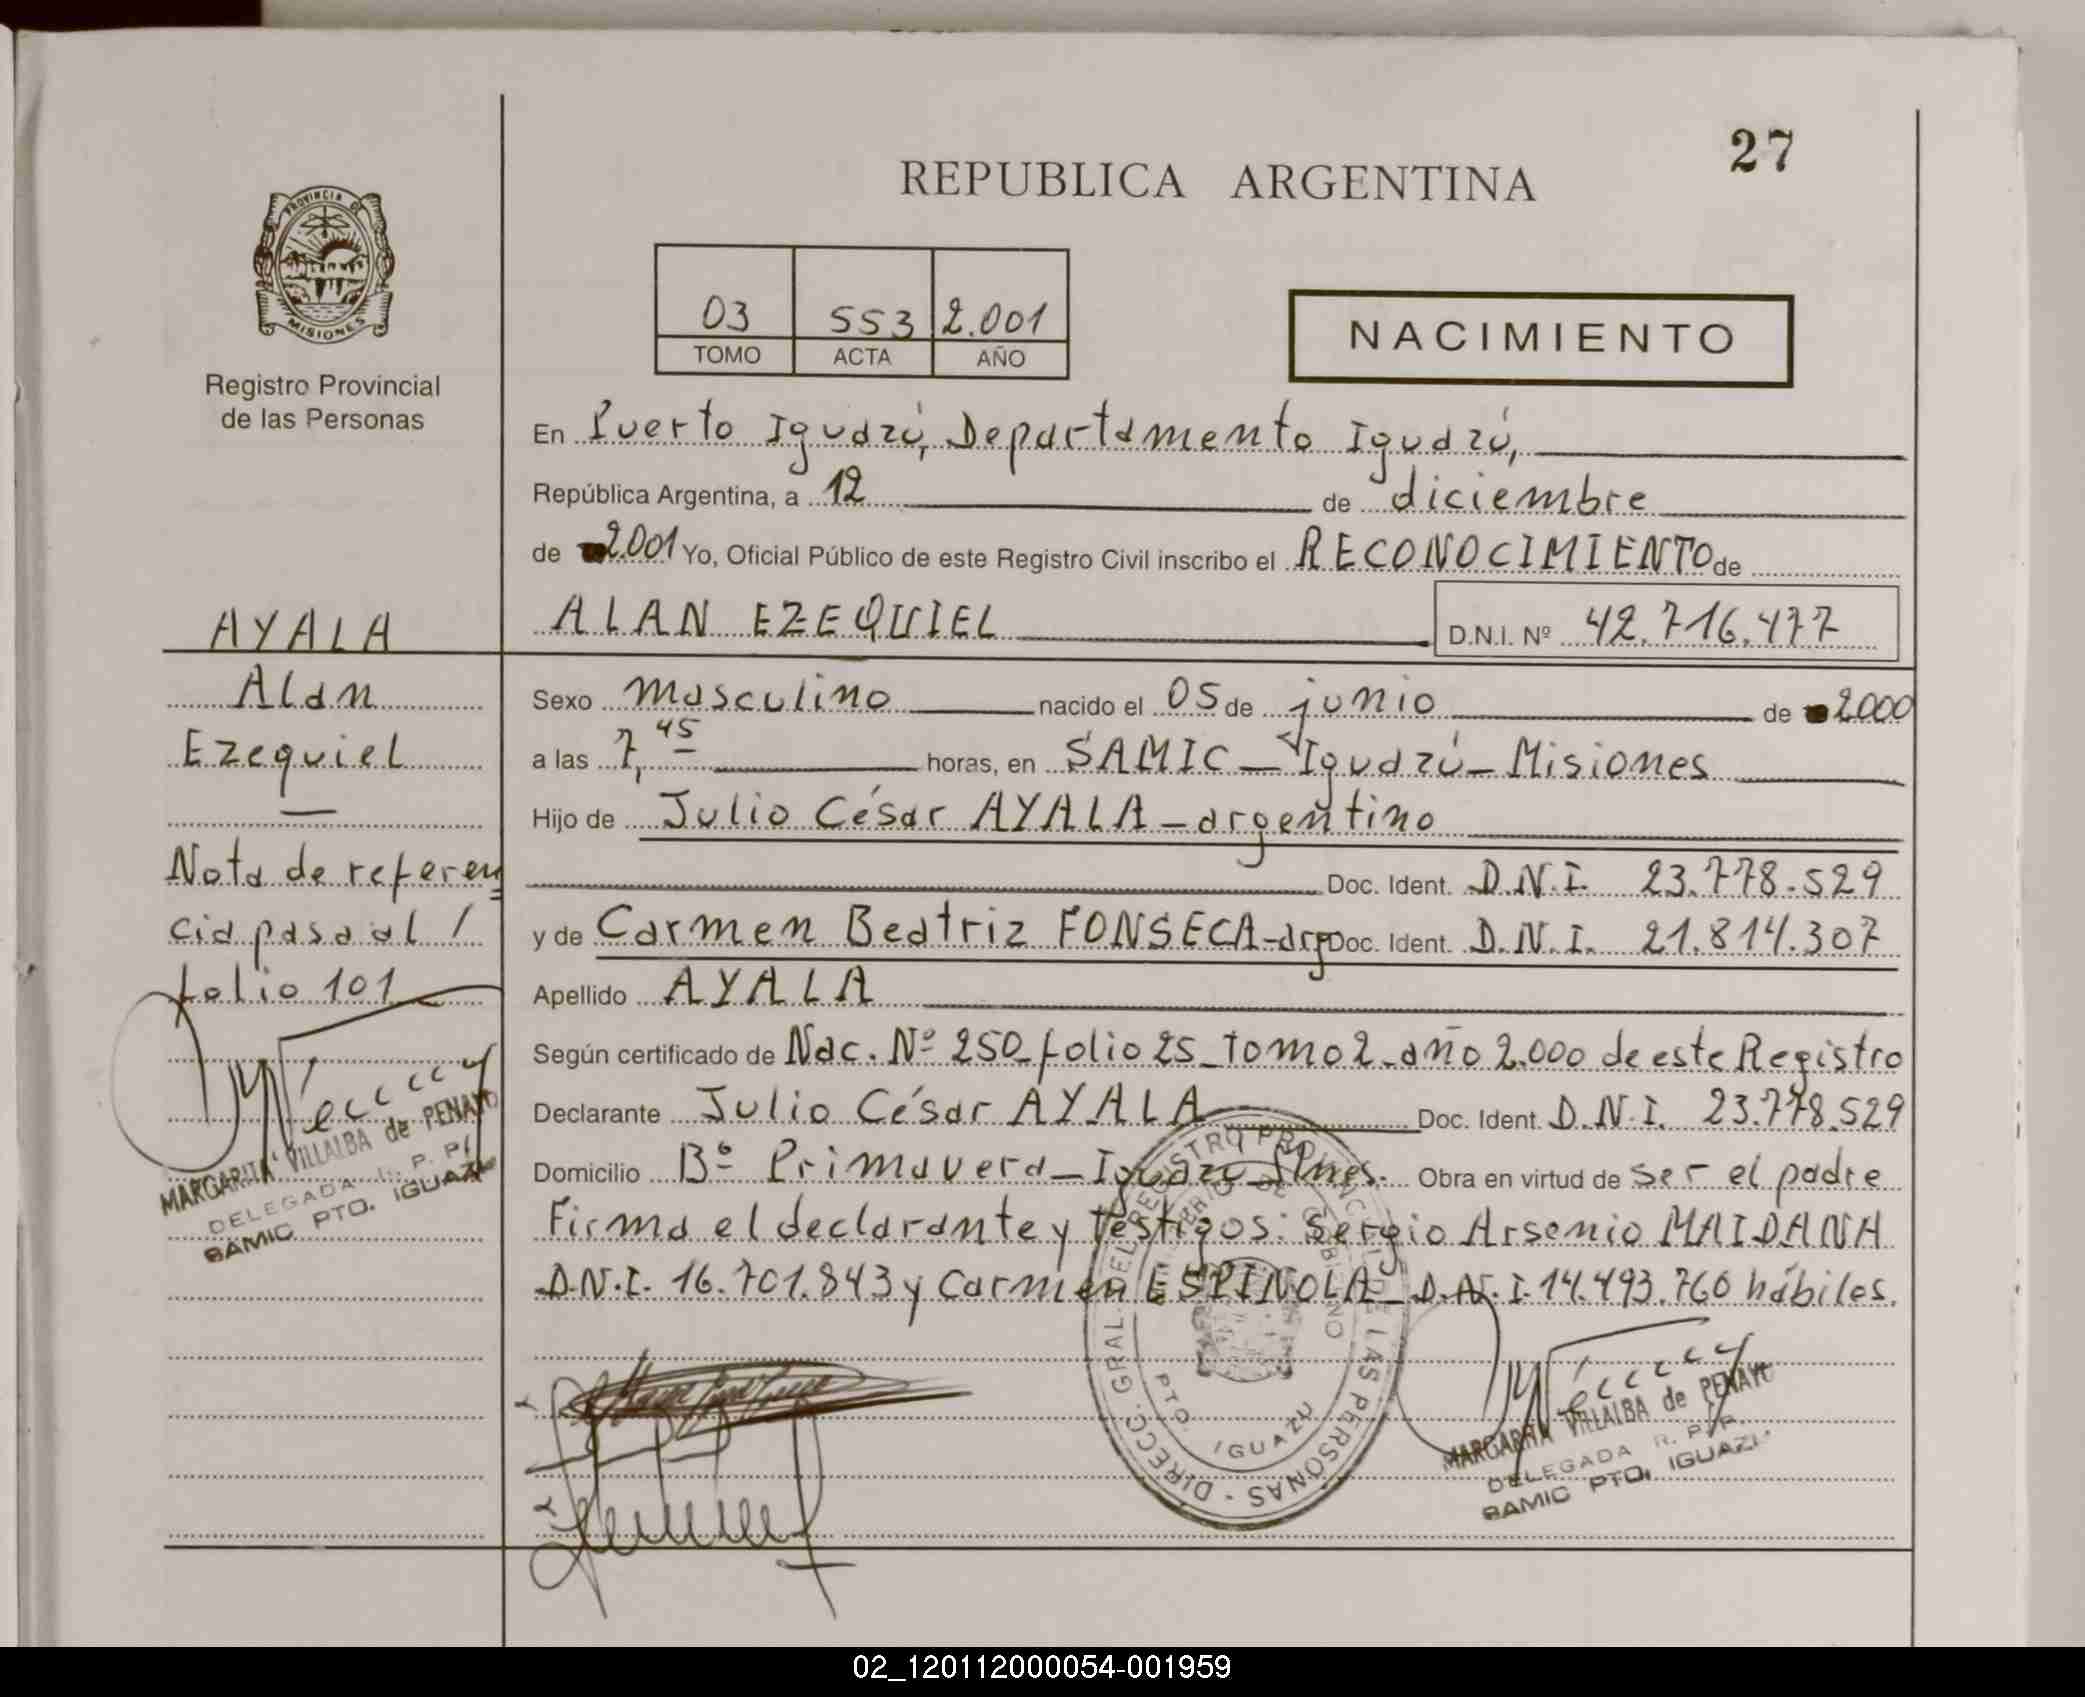 27
REPUBLICA ARGENTINA
PROVINCIA DE
MISIONES
Registro Provincial
de las Personas
03 553 2.001
TOMO ACTA AÑO
NACIMIENTO
En Puerto Iguazú, Departamento Iguazú,
República Argentina, a 12 de diciembre
de 2.001 Yo, Oficial Público de este Registro Civil inscribo el RECONOCIMIENTO de
ALAN EZEQUIEL D.N.I. Nº 42.716.477
AYALA
Alan
Ezequiel
Nota de referen
cia pasa al /
folio 101
MARGARITA VILLALBA de PENAYO
DELEGADA R. P. P.
SAMIC PTO. IGUAZU
Sexo masculino nacido el 05 de junio de 2000
a las 7,45 horas, en SAMIC - Iguazú - Misiones
Hijo de Julio César AYALA - argentino
Doc. Ident. D.N.I. 23.778.529
y de Carmen Beatriz FONSECA - arg Doc. Ident. D.N.I. 21.814.307
Apellido AYALA
Según certificado de Nac. Nº 250 - folio 25 - tomo 2 - año 2.000 de este Registro
Declarante Julio César AYALA Doc. Ident. D.N.I. 23.778.529
Domicilio Bº Primavera - Iguazú - Mnes. Obra en virtud de ser el padre
Firma el declarante y testigos: Sergio Arsenio MAIDANA
D.N.I. 16.701.843 y Carmen ESPINOLA - D.N.I. 14.493.760 hábiles.
DIRECC. GRAL. DEL REGISTRO PROVINCIAL DE LAS PERSONAS -
MINISTERIO DE GOBIERNO
PTO. IGUAZU
MARGARITA VILLALBA de PENAYO
DELEGADA R. P. P.
SAMIC PTO. IGUAZU
02_120112000054-001959